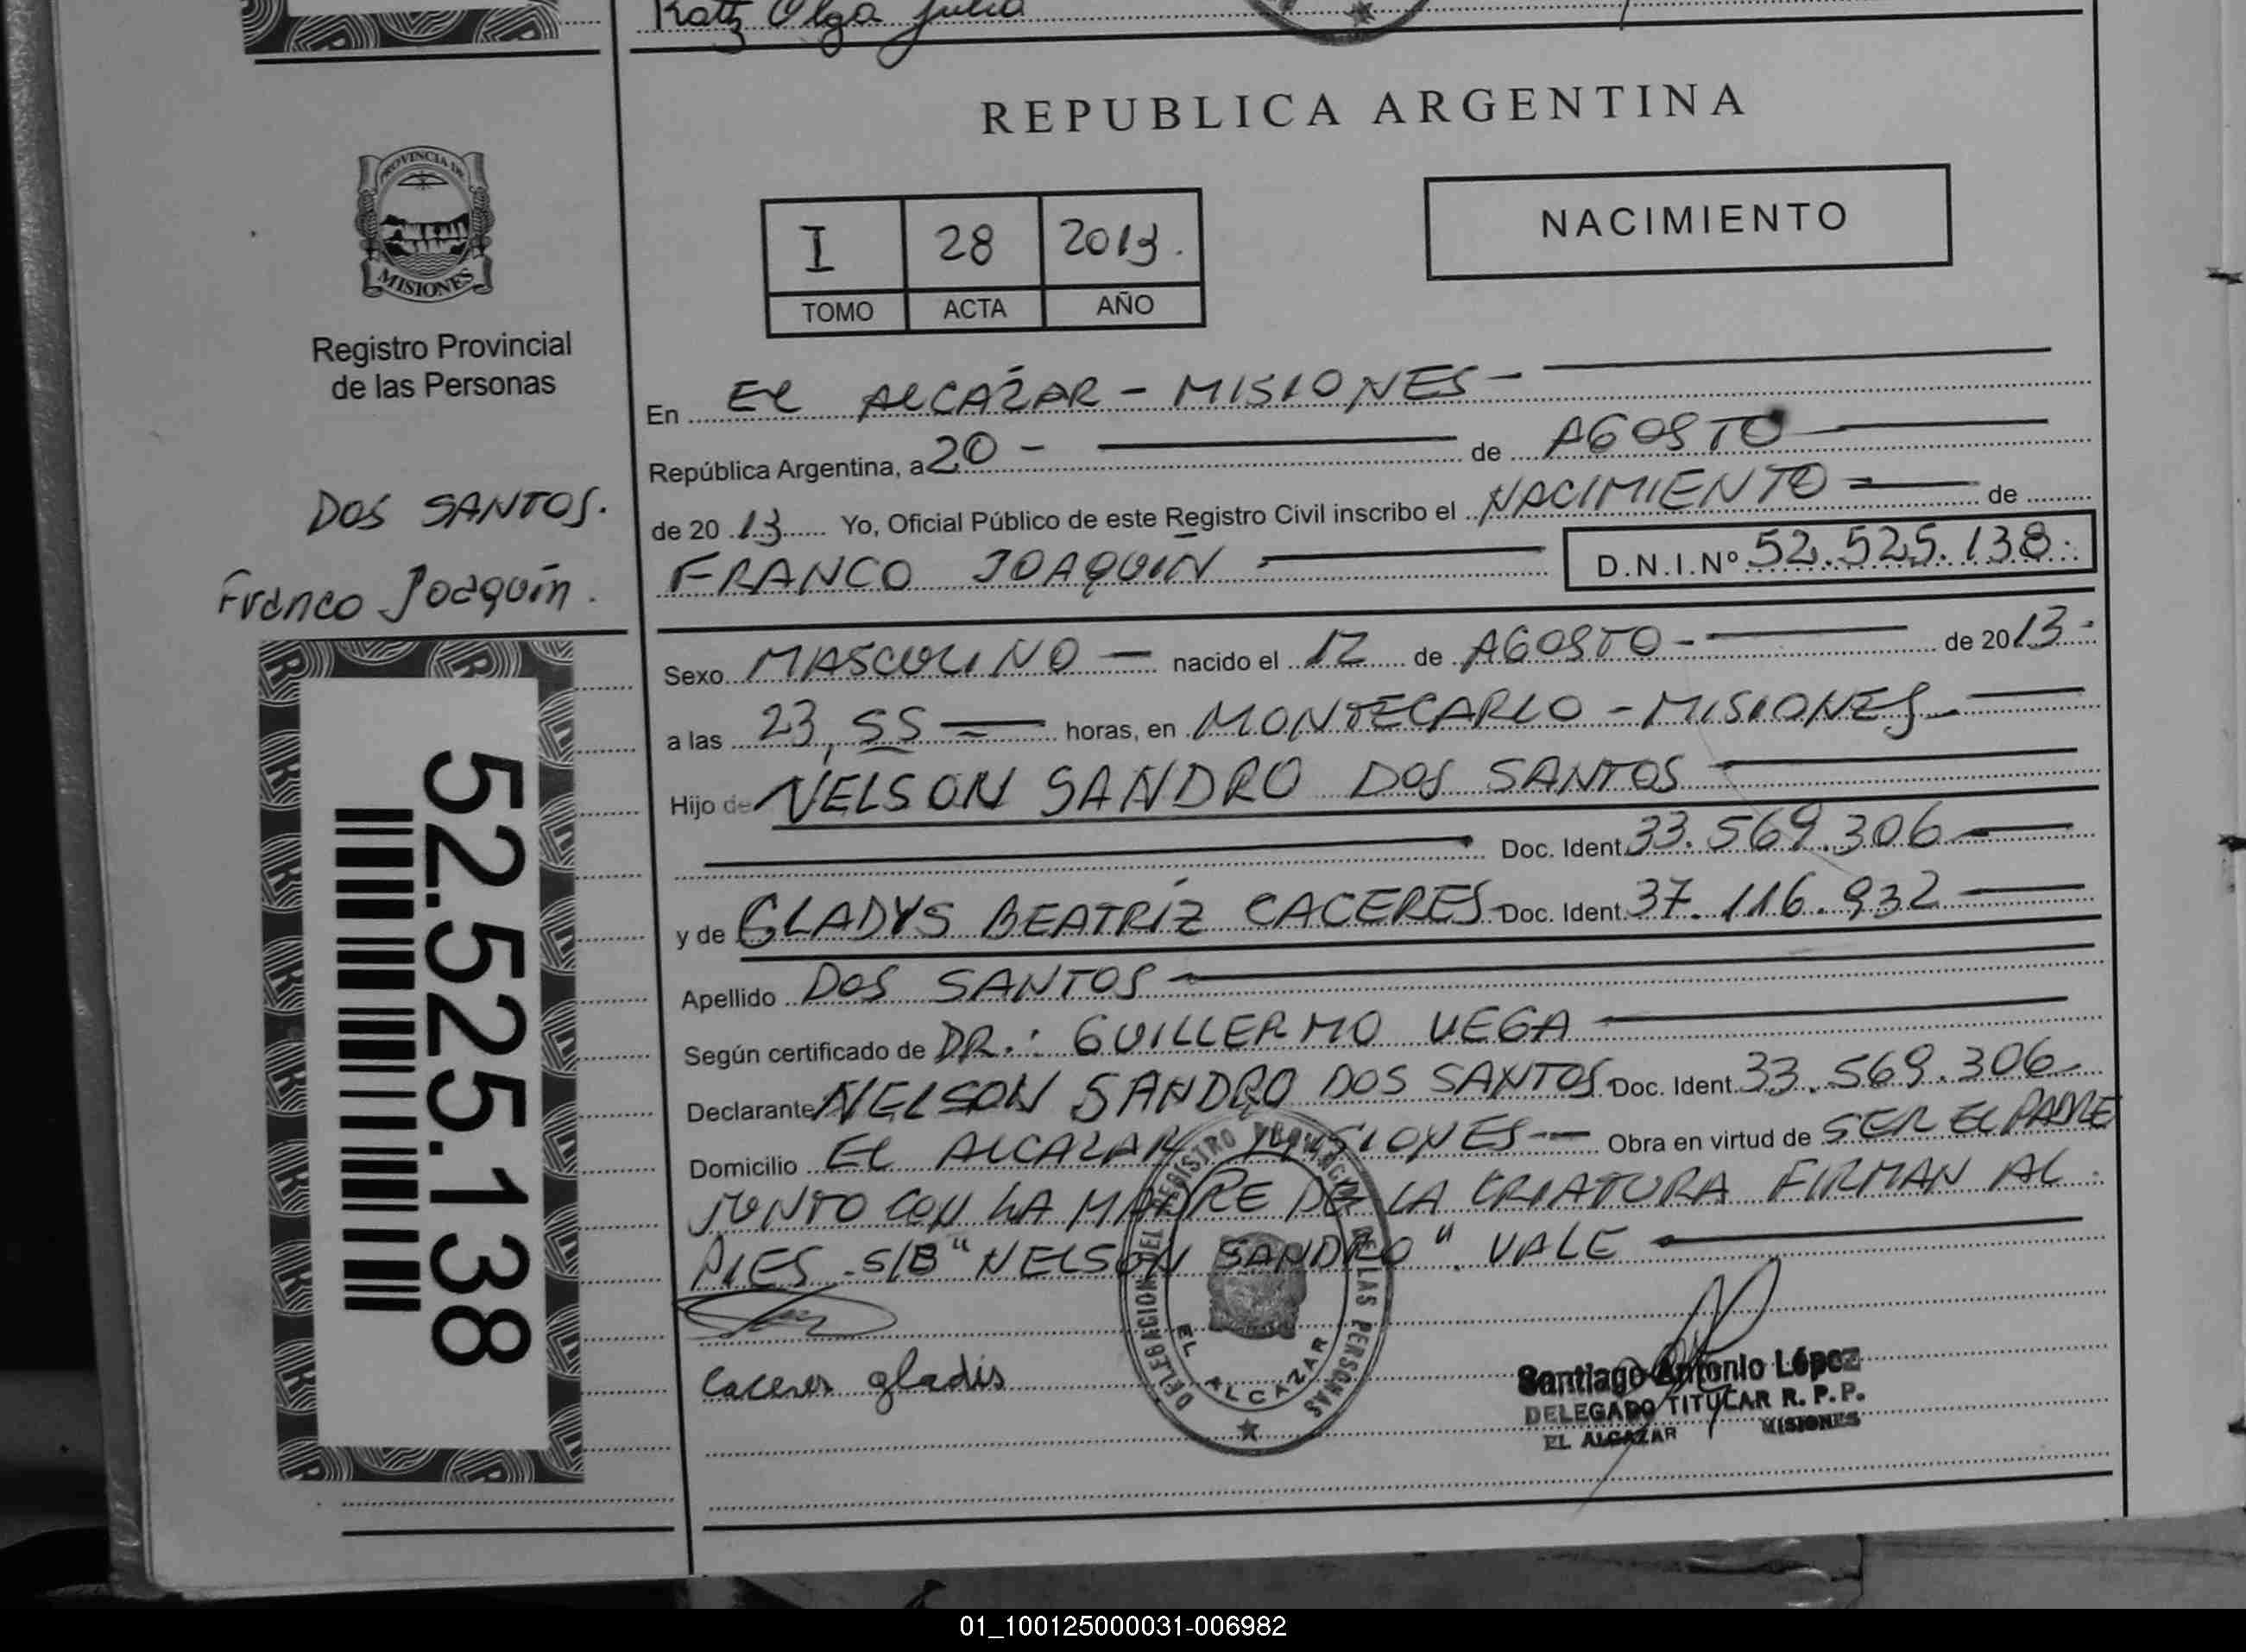 Katz Olga Julia
PROVINCIA DE
MISIONES
Registro Provincial
de las Personas
DOS SANTOS.
Franco Joaquín.
52.525.138
REPUBLICA ARGENTINA
I 28 2013.
TOMO ACTA AÑO
NACIMIENTO
En El ALCAZAR - MISIONES -
República Argentina, a 20 - de AGOSTO
de 20 13 Yo, Oficial Público de este Registro Civil inscribo el NACIMIENTO de
FRANCO JOAQUÍN D.N.I.Nº 52.525.138.
Sexo MASCULINO - nacido el 12 de AGOSTO - de 2013 -
a las 23,55 horas, en MONTECARLO - MISIONES
Hijo de NELSON SANDRO DOS SANTOS
Doc. Ident. 33.569.306
y de GLADYS BEATRÍZ CACERES Doc. Ident. 37.116.932
Apellido DOS SANTOS
Según certificado de DR.: GUILLERMO VEGA
Declarante NELSON SANDRO DOS SANTOS Doc. Ident. 33.569.306
Domicilio El ALCAZAR MISIONES -- Obra en virtud de SER El PADRE
JUNTO CON LA MADRE DE LA CRIATURA FIRMAN AL
PIES. S/B "NELSON SANDRO". VALE
Caceres gladis
DELEGACION DEL REGISTRO PROVINCIAL DE LAS PERSONAS
EL ALCAZAR
Santiago Antonio López
DELEGADO TITULAR R. P. P.
EL ALCAZAR MISIONES
01_100125000031-006982